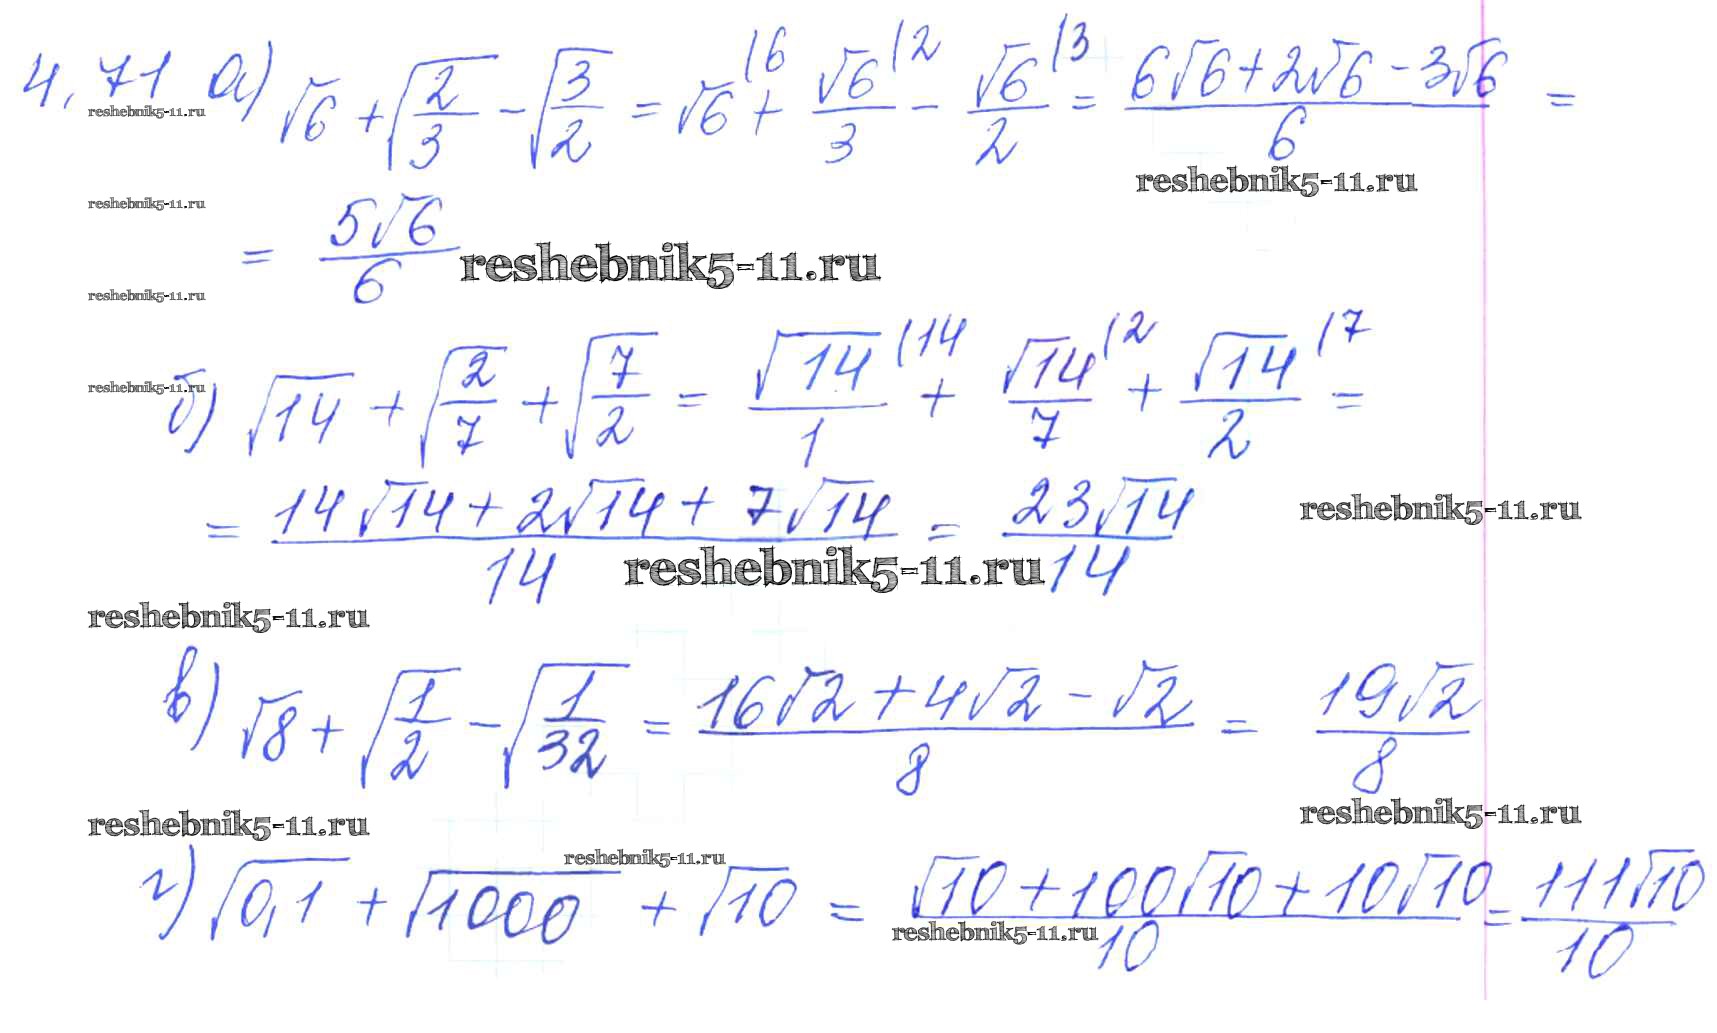 4.71 а) √6 + √(2/3) - √(3/2) = √6 (6 + √6/3 (2 - √6/2 (3 = (6√6+2√6-3√6)/6 =
reshebnik5-11.ru
reshebnik5-11.ru
reshebnik5-11.ru
= 5√6/6
reshebnik5-11.ru
reshebnik5-11.ru
б) √14 + √(2/7) + √(7/2) = √14/1 (14 + √14/7 (2 + √14/2 (7 =
reshebnik5-11.ru
= (14√14 + 2√14 + 7√14)/14 = 23√14/14
reshebnik5-11.ru
reshebnik5-11.ru
reshebnik5-11.ru
в) √8 + √(1/2) - √(1/32) = (16√2 + 4√2 - √2)/8 = 19√2/8
reshebnik5-11.ru
reshebnik5-11.ru
reshebnik5-11.ru
г) √0,1 + √1000 + √10 = (√10 + 100√10 + 10√10)/10 = 111√10/10
reshebnik5-11.ru